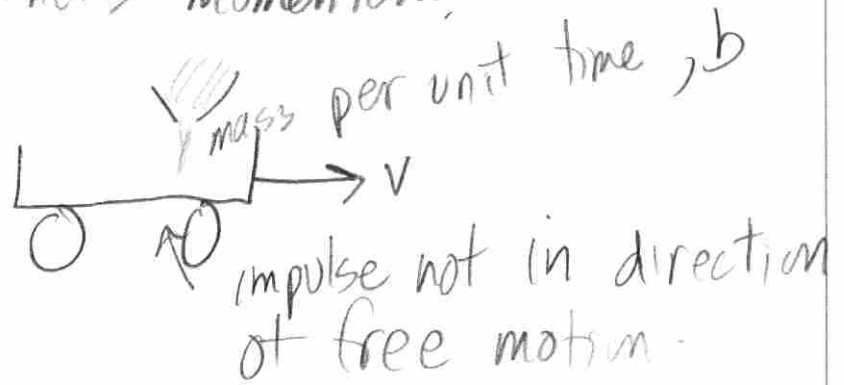 momentum,
mass per unit time, b
V
impulse not in direction
of free motion.